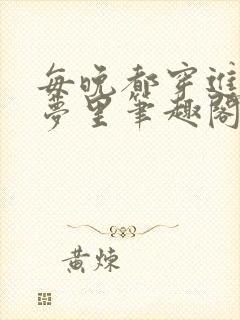 每晚都穿进
梦里笔趣阁
黄炼